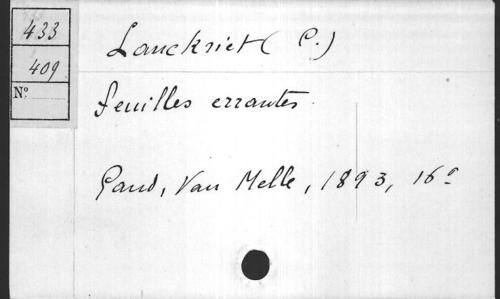 433
409
N°
Lanckriet (C.)
feuilles errantes.
Gand, Van Melle, 1893, 16°